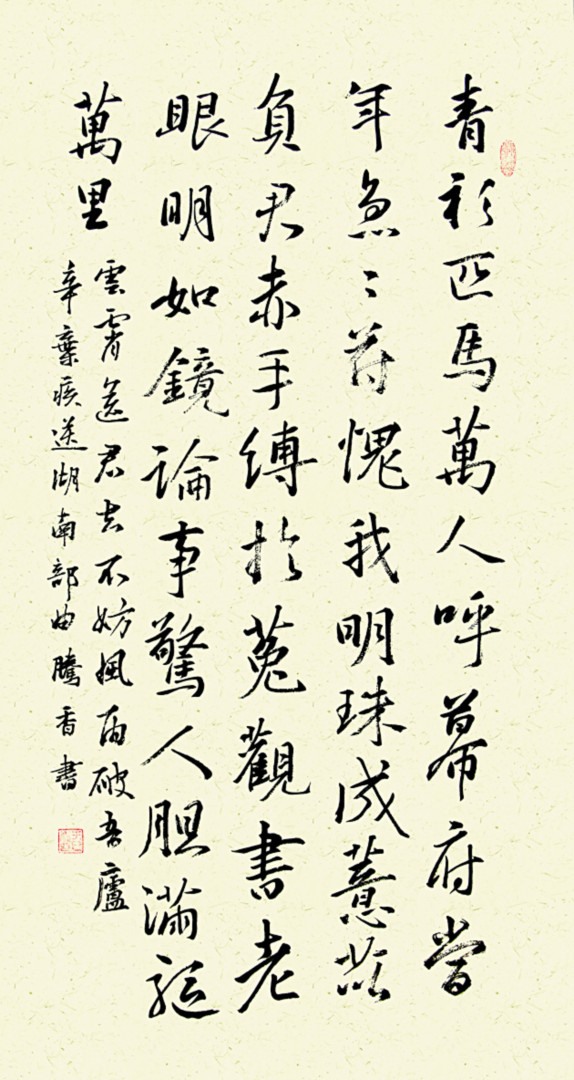 青衫匹馬萬人呼幕府當
年急〻苻愧我明珠成薏苡
負君赤手縛扵菟觀書老
眼明如鏡論事驚人胆滿軀
萬里
雲霄送君去不妨風雨破吾廬
辛棄疾送湖南部曲騰香書